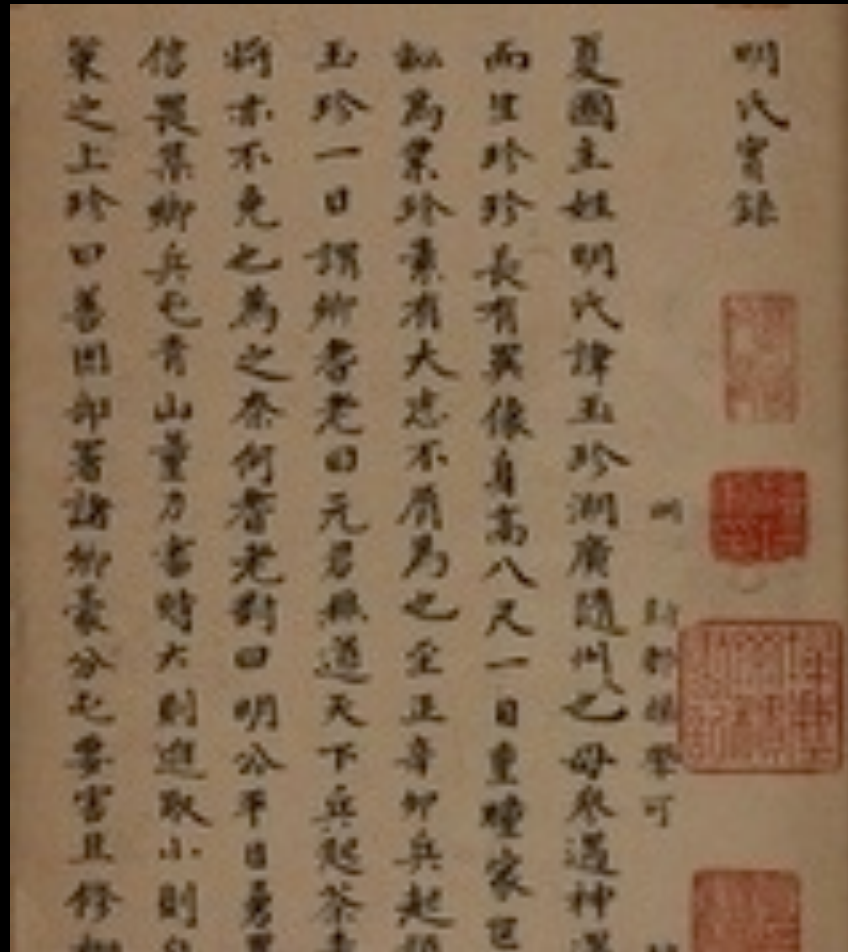 明氏實錄
明
新都楊學可
夏國主姓明氏諱玉珍湖廣隨州人母夜過神
而生珍珍長有異像身高八尺一目重瞳家世
為業珍素有大志不屑為也至正辛卯兵起
玉珍一日謂鄉耆老曰元君無道天下兵起
將亦不免也為之奈何耆老對曰明公平日勇
信畏集鄉兵屯青山量力審時大則進取小則
策之上珍曰善因部署諸鄉豪分屯要害且修